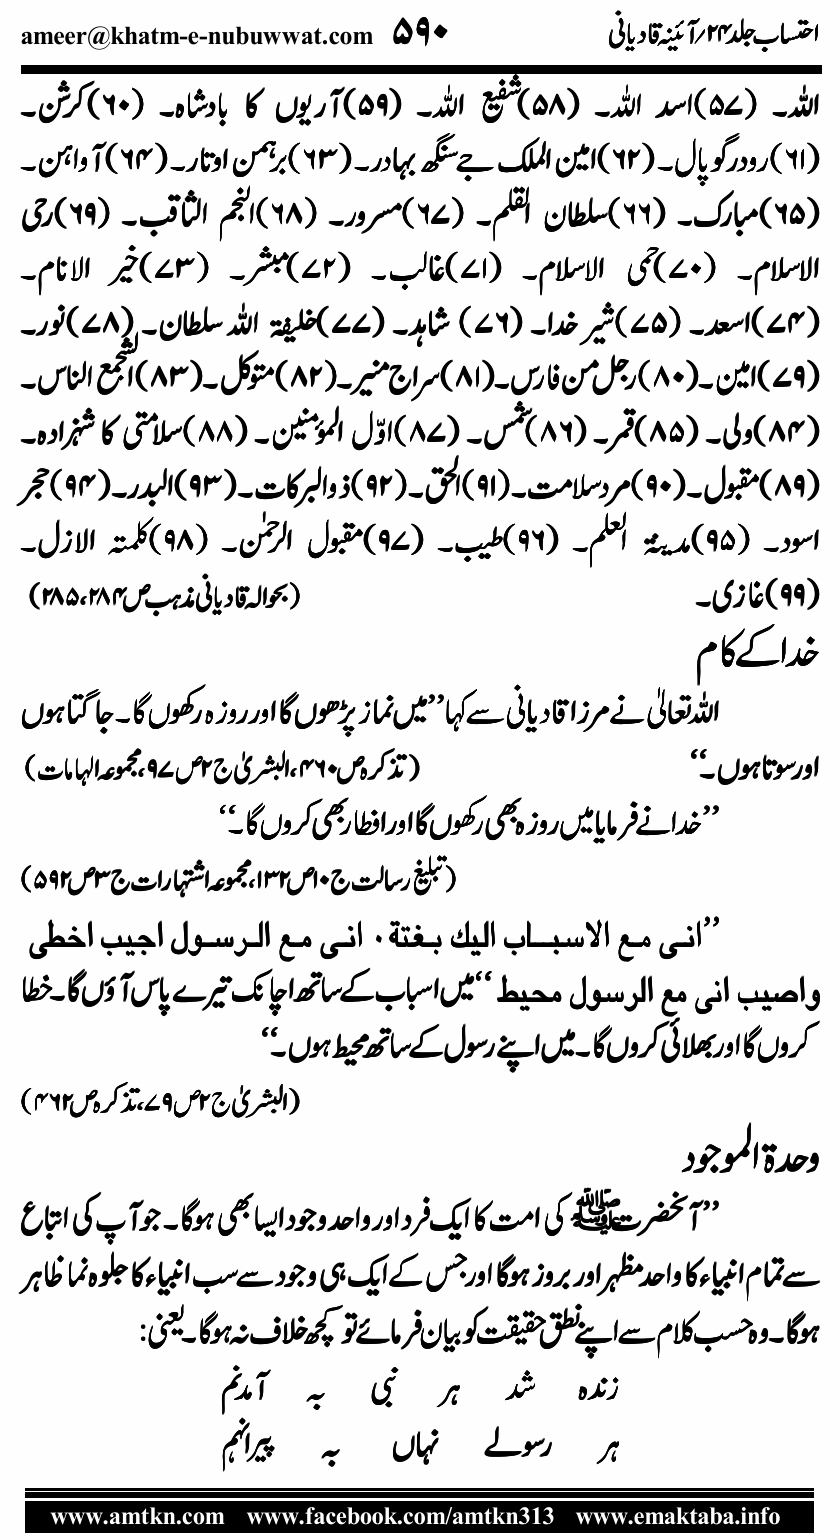 احتساب جلد ۲۴؍ آئینہ قادیانی ۵۹۰ ameer@khatm-e-nubuwwat.com
اللہ۔ (۵۷)اسد اللہ۔ (۵۸)شفیع اللہ۔ (۵۹)آریوں کا بادشاہ۔ (۶۰)کرشن۔
(۶۱)رودرگوپال۔ (۶۲)امین الملک جے سنگھ بہادر۔ (۶۳)برہمن اوتار۔ (۶۴)آواہن۔
(۶۵)مبارک۔ (۶۶)سلطان القلم۔ (۶۷)مسرور۔ (۶۸)النجم الثاقب۔ (۶۹)رحی
الاسلام۔ (۷۰)حمی الاسلام۔ (۷۱)غالب۔ (۷۲)مبشر۔ (۷۳)خیر الانام۔
(۷۴)اسعد۔ (۷۵)شیر خدا۔ (۷۶) شاہد۔ (۷۷)خلیفۃ اللہ سلطان۔ (۷۸)نور۔
(۷۹)امین۔ (۸۰)رجل من فارس۔ (۸۱)سراج منیر۔ (۸۲)متوکل۔ (۸۳)اشجع الناس۔
(۸۴)ولی۔ (۸۵)قمر۔ (۸۶)شمس۔ (۸۷)اوّل المؤمنین۔ (۸۸)سلامتی کا شہزادہ۔
(۸۹)مقبول۔ (۹۰)مرد سلامت۔ (۹۱)الحق۔ (۹۲)ذوالبرکات۔ (۹۳)البدر۔ (۹۴)حجر
اسود۔ (۹۵)مدینۃ العلم۔ (۹۶)طیب۔ (۹۷)مقبول الرحمٰن۔ (۹۸)کلمتہ الازل۔
(۹۹)غازی۔ (بحوالہ قادیانی مذہب ص۲۸۴،۲۸۵)
خدا کے کام
اللہ تعالیٰ نے مرزا قادیانی سے کہا ’’میں نماز پڑھوں گا اور روزہ رکھوں گا۔ جاگتا ہوں
اور سوتا ہوں۔‘‘ (تذکرہ ص۴۶۰، البشریٰ ج۲ ص۹۷، مجموعہ الہامات)
’’خدا نے فرمایا میں روزہ بھی رکھوں گا اور افطار بھی کروں گا۔‘‘
(تبلیغ رسالت ج۱۰ ص۱۳۲، مجموعہ اشتہارات ج۳ ص۵۹۲)
’’انی مع الاسباب الیك بغتة۰ انی مع الرسول اجیب اخطی
واصیب انی مع الرسول محیط‘‘ میں اسباب کے ساتھ اچانک تیرے پاس آؤں گا۔ خطا
کروں گا اور بھلائی کروں گا۔ میں اپنے رسول کے ساتھ محیط ہوں۔‘‘
(البشریٰ ج۲ ص۷۹، تذکرہ ص۴۶۲)
وحدۃ الموجود
’’آنحضرت ﷺ کی امت کا ایک فرد اور واحد وجود ایسا بھی ہوگا۔ جو آپ کی اتباع
سے تمام انبیاء کا واحد مظہر اور بروز ہوگا اور جس کے ایک ہی وجود سے سب انبیاء کا جلوہ نما ظاہر
ہوگا۔ وہ حسب کلام سے اپنے نطق حقیقت کو بیان فرمائے تو کچھ خلاف نہ ہوگا۔ یعنی:
زندہ شد ہر نبی بہ آمدنم
ہر رسولے نہاں بہ پیراہنم
www.amtkn.com www.facebook.com/amtkn313 www.emaktaba.info